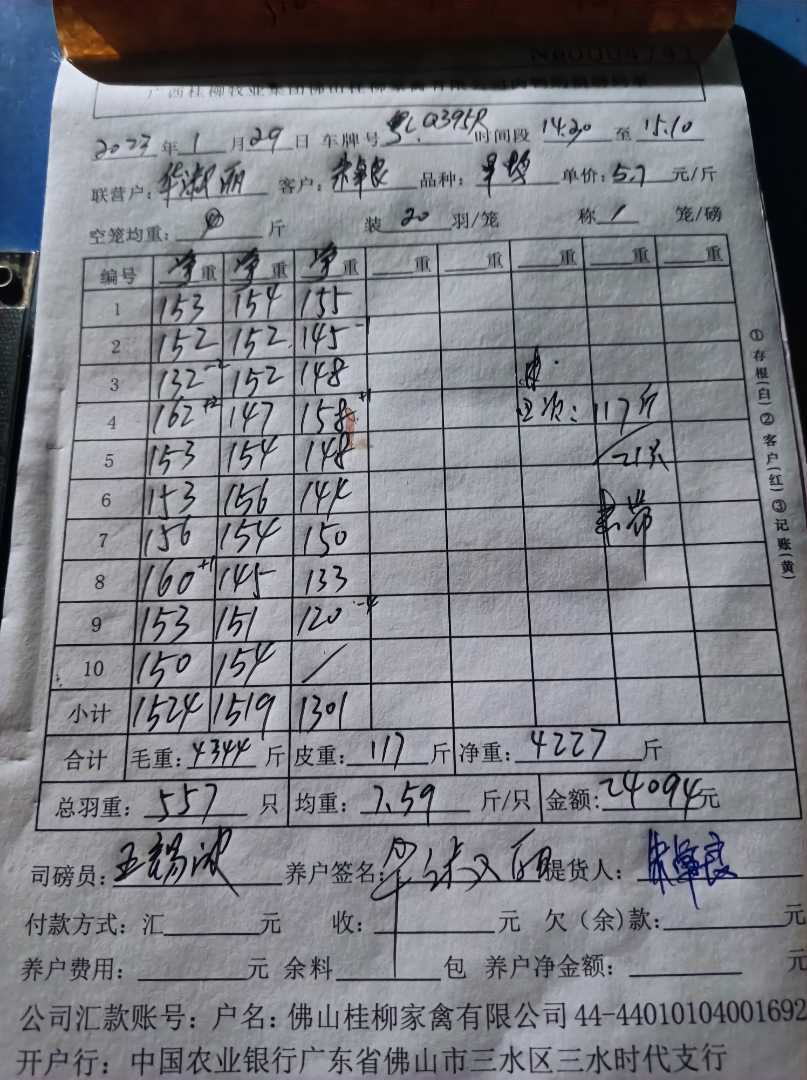 No0004741
2023年1月29日 车牌号 Q395R 时间段 14.20 至 15.10
联营户: 华淑丽 客户: 品种: 单价: 5.7 元/斤
空笼均重: 斤 装 20 羽/笼 称 1 笼/磅
编号 净重 净重 净重 重 重 重 重 重
1 153 154 155
2 152 152 145 -1
3 132 -2 152 148
4 162 +2 147 158 +1 117斤
5 153 154 148 21只
6 153 156 144
7 156 154 150
8 160 +1 145 133
9 153 151 120 -4
10 150 154 /
小计 1524 1519 1301
合计 毛重: 4344 斤 皮重: 117 斤 净重: 4227 斤
总羽重: 557 只 均重: 7.59 斤/只 金额: 24094元
司磅员: 王锡波 养户签名: 提货人:
付款方式: 汇 元 收: 元 欠(余)款: 元
养户费用: 元 余料 包 养户净金额: 元
公司汇款账号: 户名: 佛山桂柳家禽有限公司 44-44010104001692
开户行: 中国农业银行广东省佛山市三水区三水时代支行
①存根(白)②客户(红)③记账(黄)